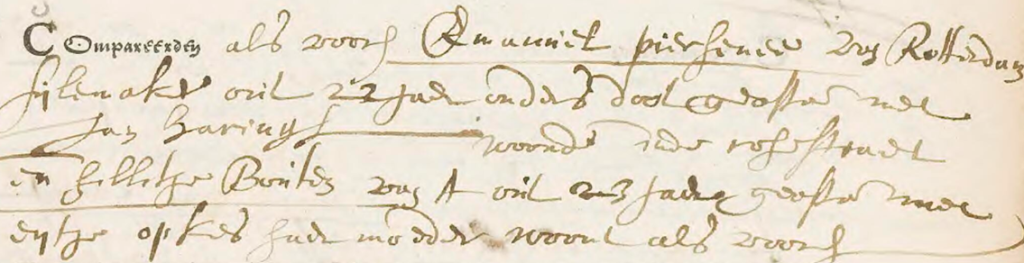 Compareerden als voorß Emanuel piersenee van Rotterdam
sijlemaker out 22 Jaer ouders doot geassist met
Jan Harings woonde inde rosestraet
en hilletje Boites van A out 23 Jaer geassist met
eijtje opkes haer moeder woont als voorß